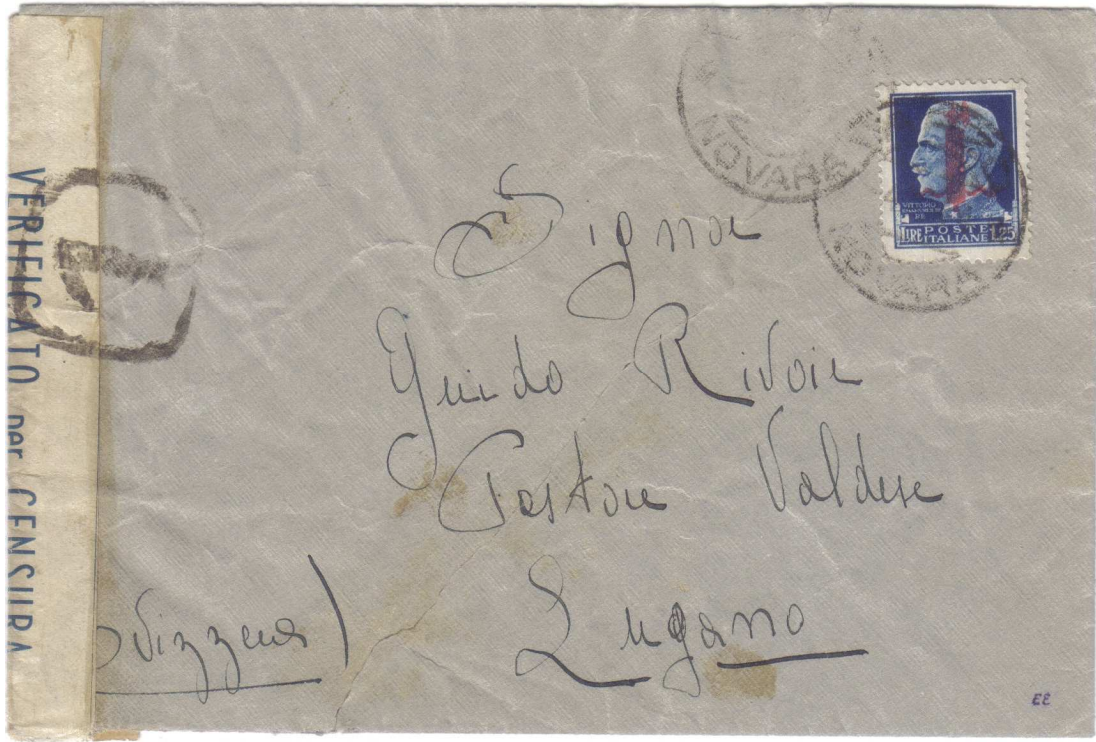 VERIFICATO per CENSURA
NOVARA
NOVARA
VITTORIO
EMANUELE III
RE
LIRE POSTE ITALIANE 1,25
Signor
Guido Rivoir
Pastore Valdese
Lugano
Svizzera)
EE